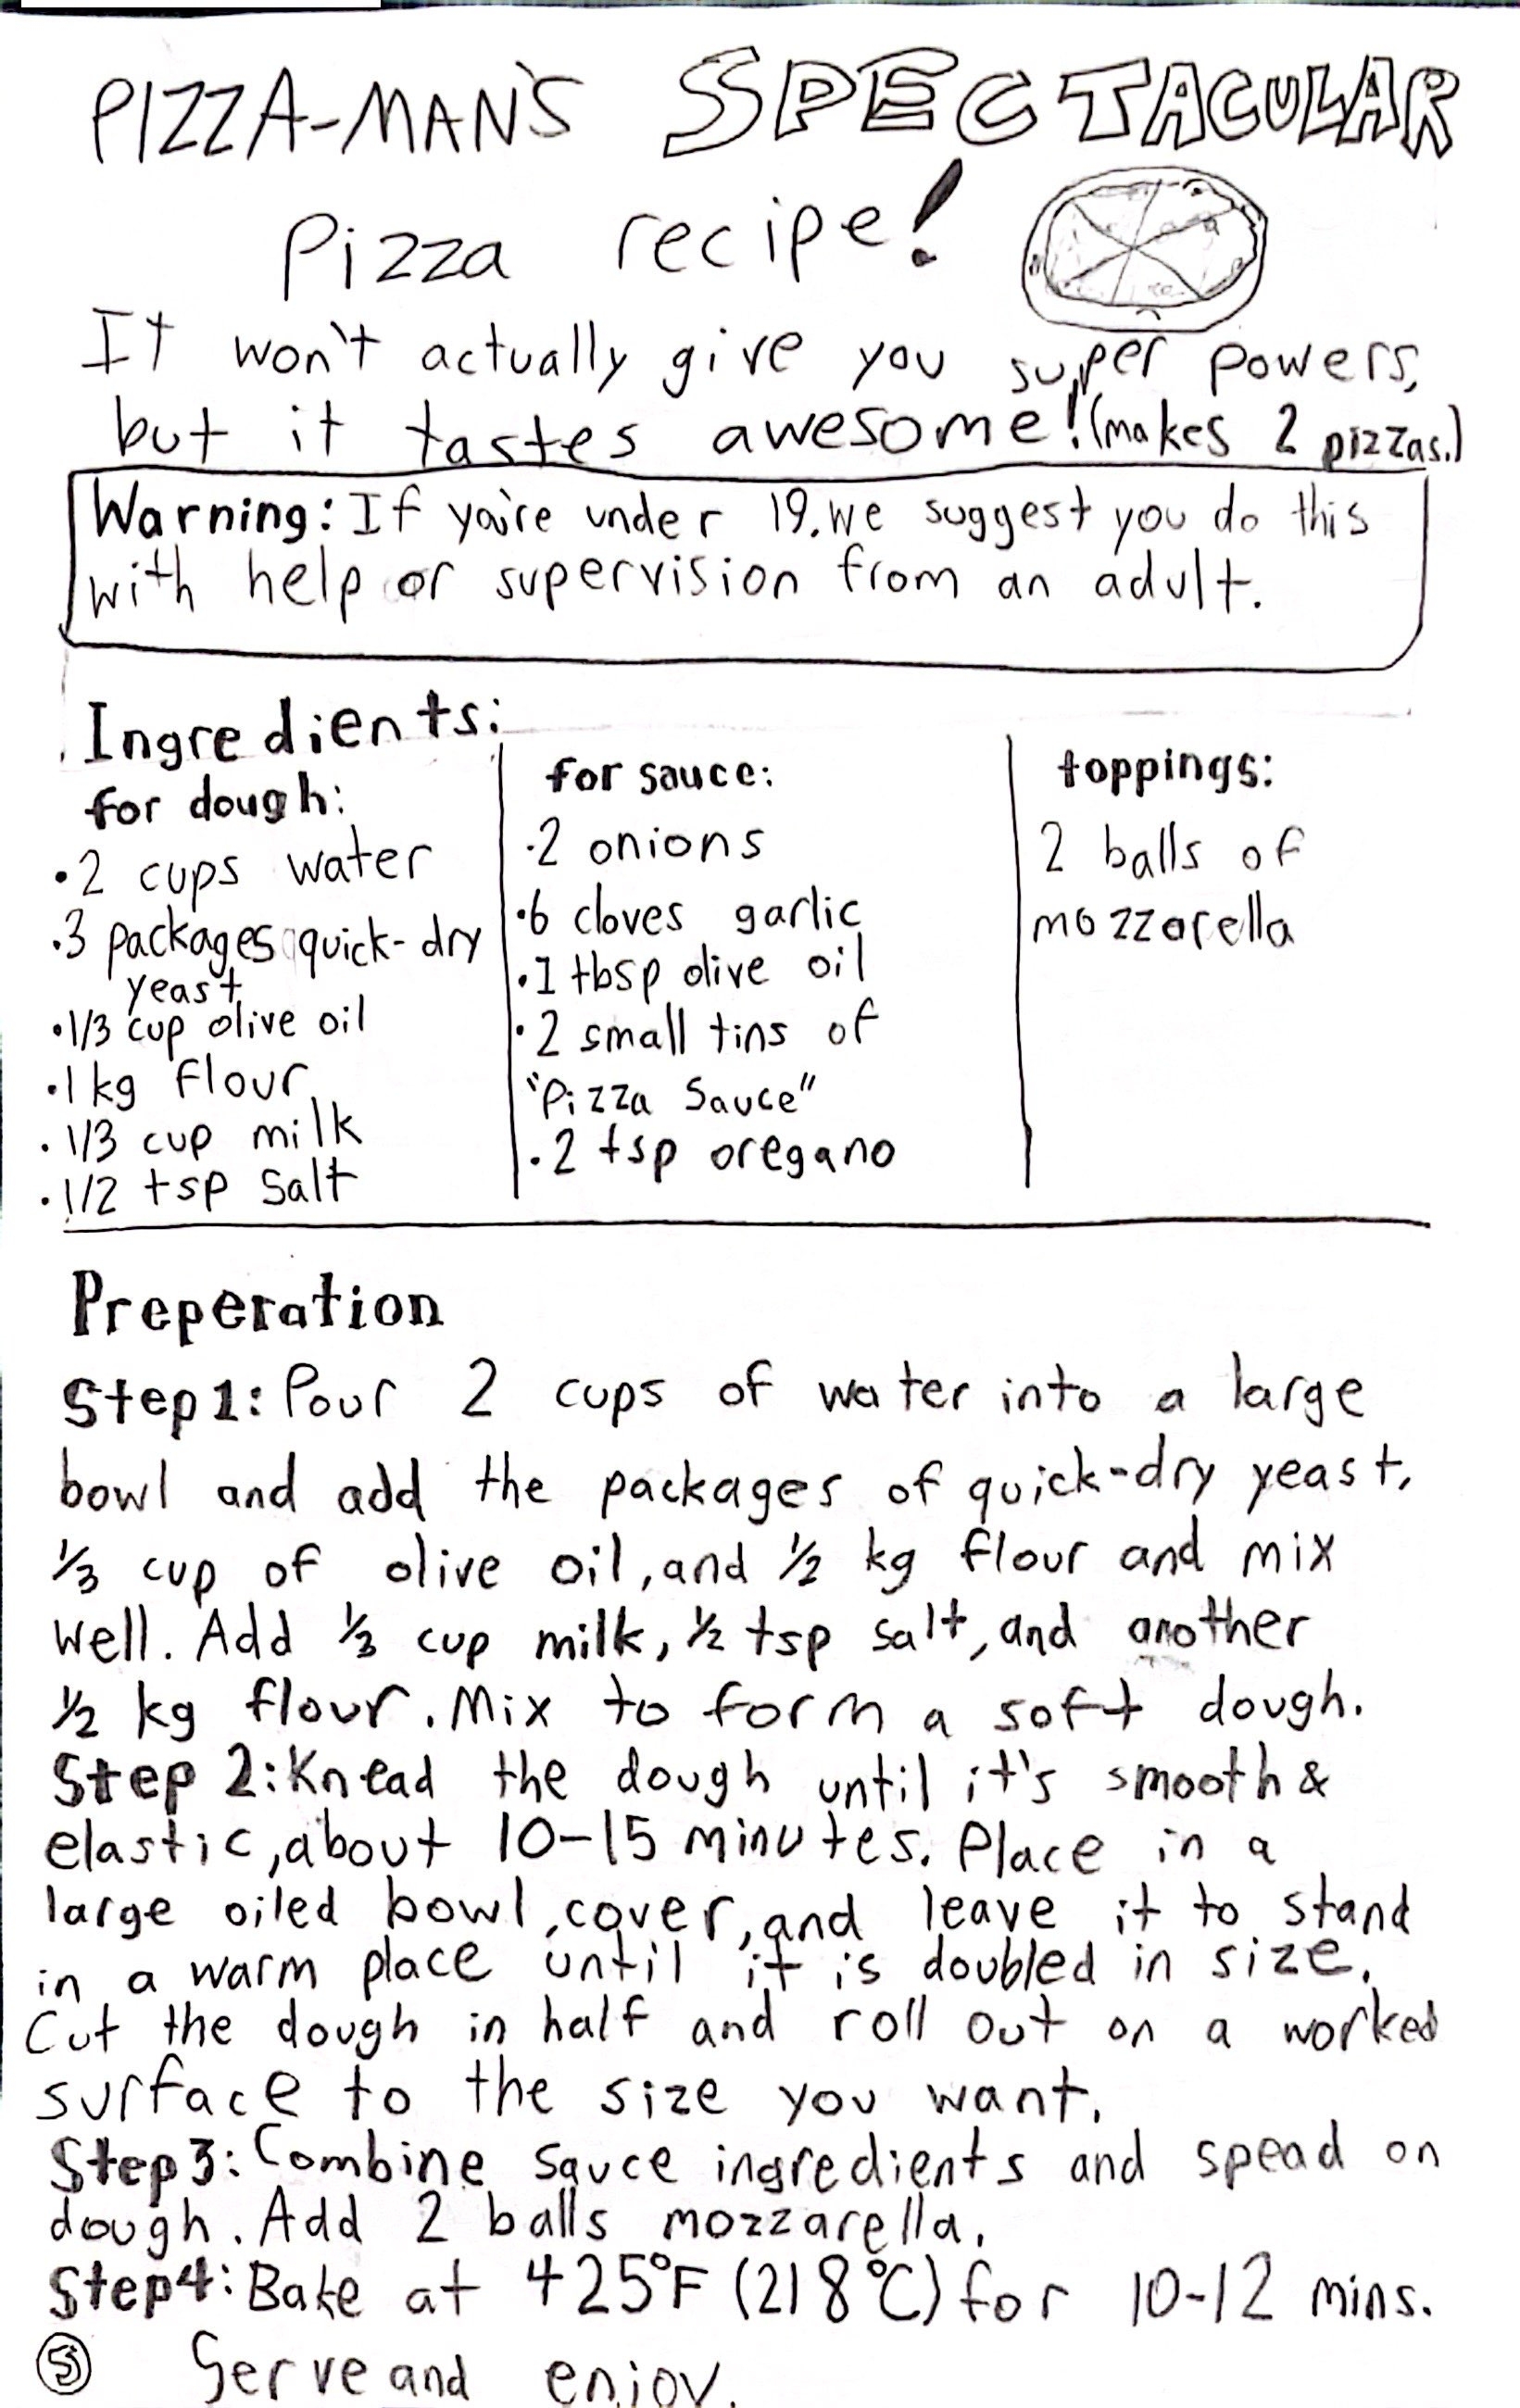 PIZZA-MAN'S SPECTACULAR
Pizza recipe!
It won't actually give you super powers,
but it tastes awesome! (makes 2 pizzas.)
Warning: If you're under 19, we suggest you do this
with help or supervision from an adult.
Ingredients:
for dough:
• 2 cups water
• 3 packages quick-dry
yeast
• 1/3 cup olive oil
• 1 kg flour
• 1/3 cup milk
• 1/2 tsp salt
for sauce:
• 2 onions
• 6 cloves garlic
• 1 tbsp olive oil
• 2 small tins of
"Pizza Sauce"
• 2 tsp oregano
toppings:
2 balls of
mozzarella
Preperation
Step 1: Pour 2 cups of water into a large
bowl and add the packages of quick-dry yeast,
1/3 cup of olive oil, and 1/2 kg flour and mix
well. Add 1/3 cup milk, 1/2 tsp salt, and another
1/2 kg flour. Mix to form a soft dough.
Step 2: Knead the dough until it's smooth &
elastic, about 10-15 minutes. Place in a
large oiled bowl, cover, and leave it to stand
in a warm place until it is doubled in size.
Cut the dough in half and roll out on a worked
surface to the size you want.
Step 3: Combine sauce ingredients and spead on
dough. Add 2 balls mozzarella.
Step 4: Bake at 425°F (218°C) for 10-12 mins.
5 Serve and enjoy.